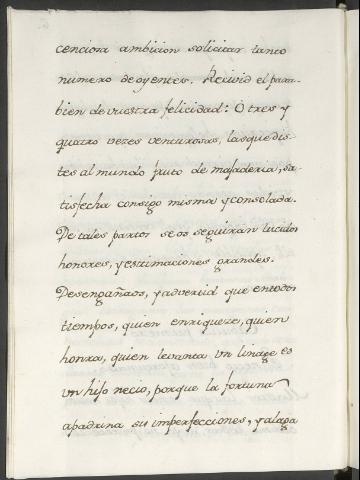 cenciosa ambicion solicitar tanto
numero de oyentes. Recivid el para-
bien de vuestra felicidad: O tres y
quatro vezes venturosas, las que dis-
tes al mundo fruto de majaderia, sa-
tisfecha consigo misma y consolada.
De tales partos se os seguirán lucidos
honores, y estimaciones grandes.
Desengañaos, y advertid que en todos
tiempos, quien enriqueze, quien
honrra, quien levanta un linage es
un hijo necio, porque la fortuna
apadrina su imperfecciones, y alaga